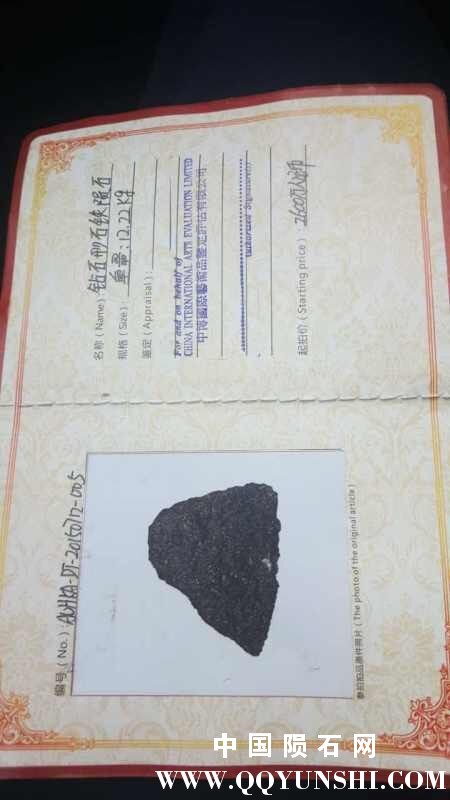 编号（No.）：AUHKA-DT-20150712-005
参拍拍品原件照片（The photo of the original article）
名称（Name）：钻石形石铁陨石
规格（Size）：单重：12.22kg
鉴定（Appraisal）：
For and on behalf of
CHINA INTERNATIONAL ARTS EVALUATION LIMITED
中博國際藝術品鑒定評估有限公司
Authorized Signature(s)
起拍价（Starting price）：2600万人民币
中国陨石网
WWW.QQYUNSHI.COM